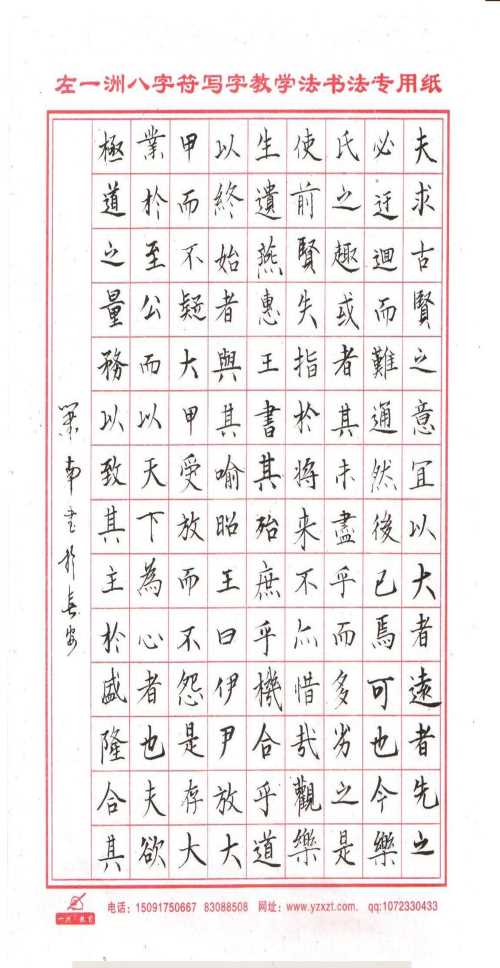 左一洲八字符写字教学法书法专用纸
夫求古賢之意宜以大者遠者先之
必迂迴而難通然後已焉可也今樂
氏之趣或者其未盡乎而多劣之是
使前賢失指於將來不亦惜哉觀樂
生遺燕惠王書其殆庶乎機合乎道
以終始者與其喻昭王曰伊尹放大
甲而不疑大甲受放而不怨是存大
業於至公而以天下為心者也夫欲
極道之量務以致其主於盛隆合其
南书於長安
一洲教育
电话：15091750667 83088508 网址：www.yzxzt.com. qq:1072330433